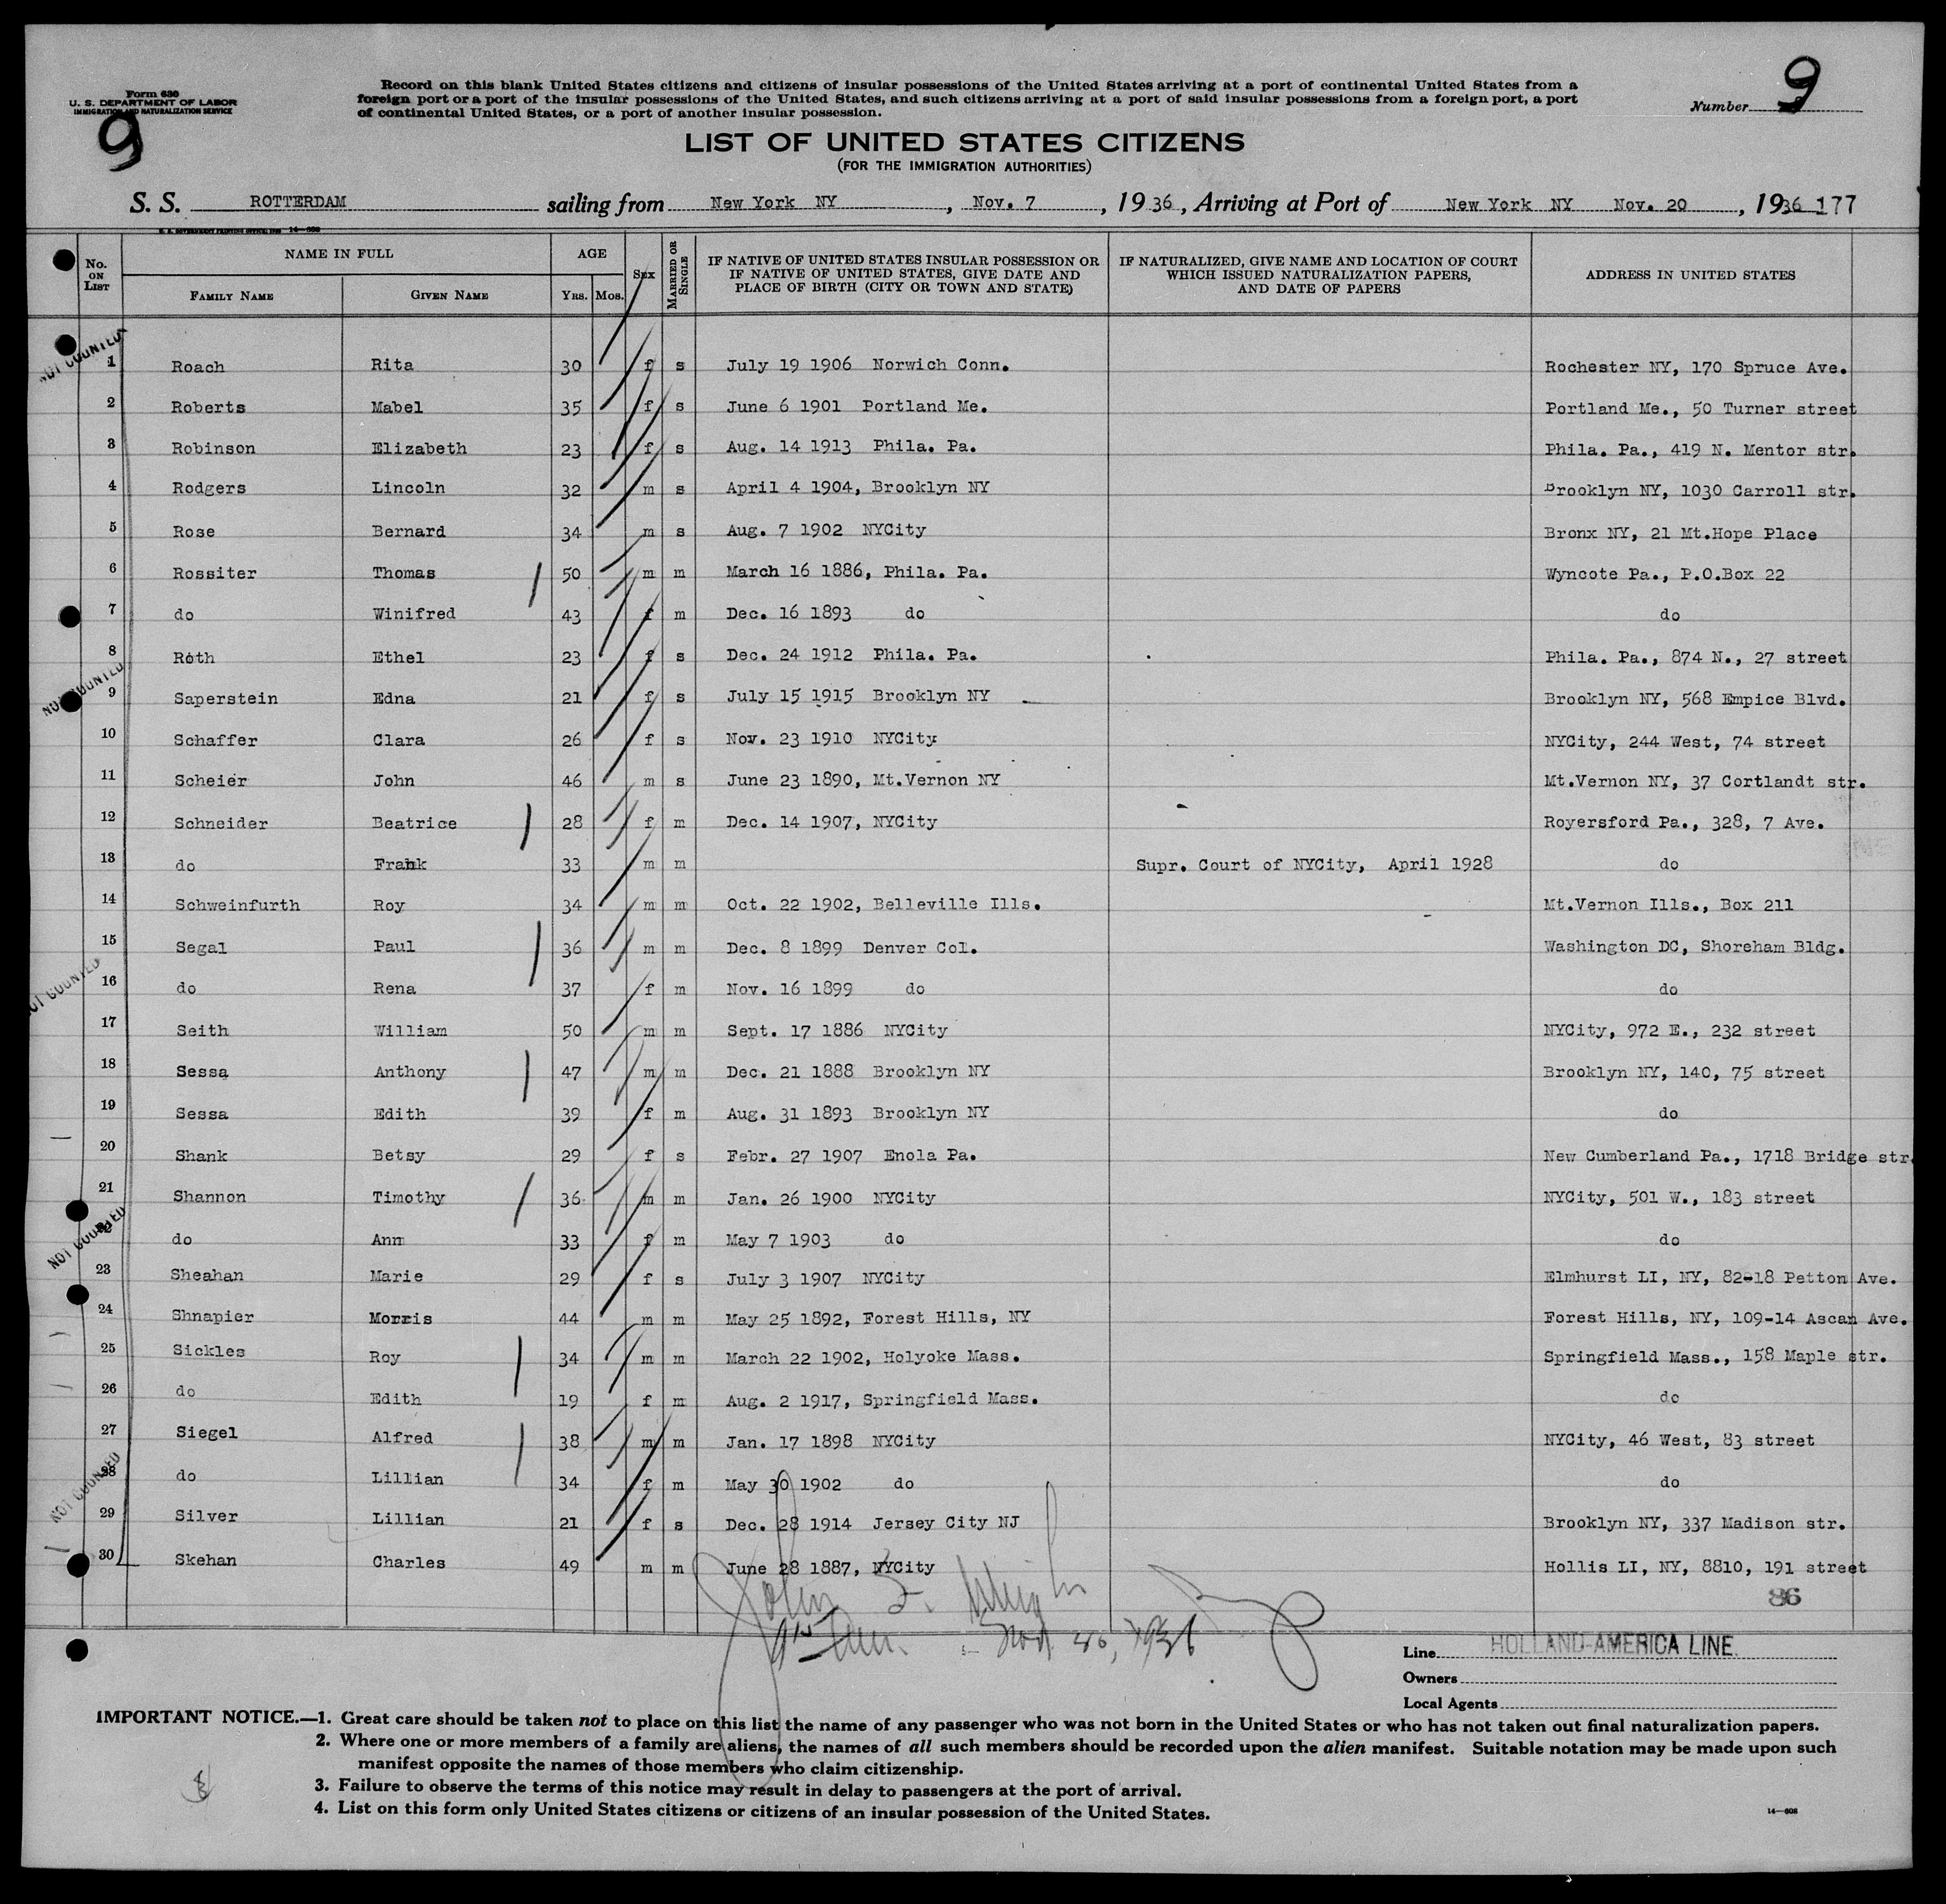 Form 630
U. S. DEPARTMENT OF LABOR
IMMIGRATION AND NATURALIZATION SERVICE
9
Record on this blank United States citizens and citizens of insular possessions of the United States arriving at a port of continental United States from a
foreign port or a port of the insular possessions of the United States, and such citizens arriving at a port of said insular possessions from a foreign port, a port
of continental United States, or a port of another insular possession.
Number 9
LIST OF UNITED STATES CITIZENS
(FOR THE IMMIGRATION AUTHORITIES)
S. S. ROTTERDAM sailing from New York NY, Nov. 7, 1936, Arriving at Port of New York NY Nov. 20, 1936 177
U. S. GOVERNMENT PRINTING OFFICE 14—608
No. ON LIST NAME IN FULL AGE SEX MARRIED OR SINGLE IF NATIVE OF UNITED STATES INSULAR POSSESSION OR IF NATIVE OF UNITED STATES, GIVE DATE AND PLACE OF BIRTH (CITY OR TOWN AND STATE) IF NATURALIZED, GIVE NAME AND LOCATION OF COURT WHICH ISSUED NATURALIZATION PAPERS, AND DATE OF PAPERS ADDRESS IN UNITED STATES
FAMILY NAME GIVEN NAME YRS. MOS.
NOT COUNTED
1 Roach Rita 30 f s July 19 1906 Norwich Conn. Rochester NY, 170 Spruce Ave.
2 Roberts Mabel 35 f s June 6 1901 Portland Me. Portland Me., 50 Turner street
3 Robinson Elizabeth 23 f s Aug. 14 1913 Phila. Pa. Phila. Pa., 419 N. Mentor str.
4 Rodgers Lincoln 32 m s April 4 1904, Brooklyn NY Brooklyn NY, 1030 Carroll str.
5 Rose Bernard 34 m s Aug. 7 1902 NYCity Bronx NY, 21 Mt.Hope Place
6 Rossiter Thomas 50 m m March 16 1886, Phila. Pa. Wyncote Pa., P.O.Box 22
7 do Winifred 43 f m Dec. 16 1893 do do
8 Roth Ethel 23 f s Dec. 24 1912 Phila. Pa. Phila. Pa., 874 N., 27 street
NOT COUNTED
9 Saperstein Edna 21 f s July 15 1915 Brooklyn NY Brooklyn NY, 568 Empice Blvd.
10 Schaffer Clara 26 f s Nov. 23 1910 NYCity NYCity, 244 West, 74 street
11 Scheier John 46 m s June 23 1890, Mt.Vernon NY Mt.Vernon NY, 37 Cortlandt str.
12 Schneider Beatrice 28 f m Dec. 14 1907, NYCity Royersford Pa., 328, 7 Ave.
13 do Frank 33 m m Supr. Court of NYCity, April 1928 do
14 Schweinfurth Roy 34 m m Oct. 22 1902, Belleville Ills. Mt.Vernon Ills., Box 211
15 Segal Paul 36 m m Dec. 8 1899 Denver Col. Washington DC, Shoreham Bldg.
NOT COUNTED
16 do Rena 37 f m Nov. 16 1899 do do
17 Seith William 50 m m Sept. 17 1886 NYCity NYCity, 972 E., 232 street
18 Sessa Anthony 47 m m Dec. 21 1888 Brooklyn NY Brooklyn NY, 140, 75 street
19 Sessa Edith 39 f m Aug. 31 1893 Brooklyn NY do
20 Shank Betsy 29 f s Febr. 27 1907 Enola Pa. New Cumberland Pa., 1718 Bridge str.
21 Shannon Timothy 36 m m Jan. 26 1900 NYCity NYCity, 501 W., 183 street
NOT COUNTED
22 do Ann 33 f m May 7 1903 do do
23 Sheahan Marie 29 f s July 3 1907 NYCity Elmhurst LI, NY, 82-18 Petton Ave.
24 Shnapier Morris 44 m m May 25 1892, Forest Hills, NY Forest Hills, NY, 109-14 Ascan Ave.
25 Sickles Roy 34 m m March 22 1902, Holyoke Mass. Springfield Mass., 158 Maple str.
26 do Edith 19 f m Aug. 2 1917, Springfield Mass. do
27 Siegel Alfred 38 m m Jan. 17 1898 NYCity NYCity, 46 West, 83 street
NOT COUNTED
28 do Lillian 34 f m May 30 1902 do do
29 Silver Lillian 21 f s Dec. 28 1914 Jersey City NJ Brooklyn NY, 337 Madison str.
30 Skehan Charles 49 m m June 28 1887, NYCity Hollis LI, NY, 8810, 191 street
86
John
1936
Line HOLLAND-AMERICA LINE.
Owners
Local Agents
IMPORTANT NOTICE.—1. Great care should be taken not to place on this list the name of any passenger who was not born in the United States or who has not taken out final naturalization papers.
2. Where one or more members of a family are aliens, the names of all such members should be recorded upon the alien manifest. Suitable notation may be made upon such
manifest opposite the names of those members who claim citizenship.
3. Failure to observe the terms of this notice may result in delay to passengers at the port of arrival.
4. List on this form only United States citizens or citizens of an insular possession of the United States.
14—608